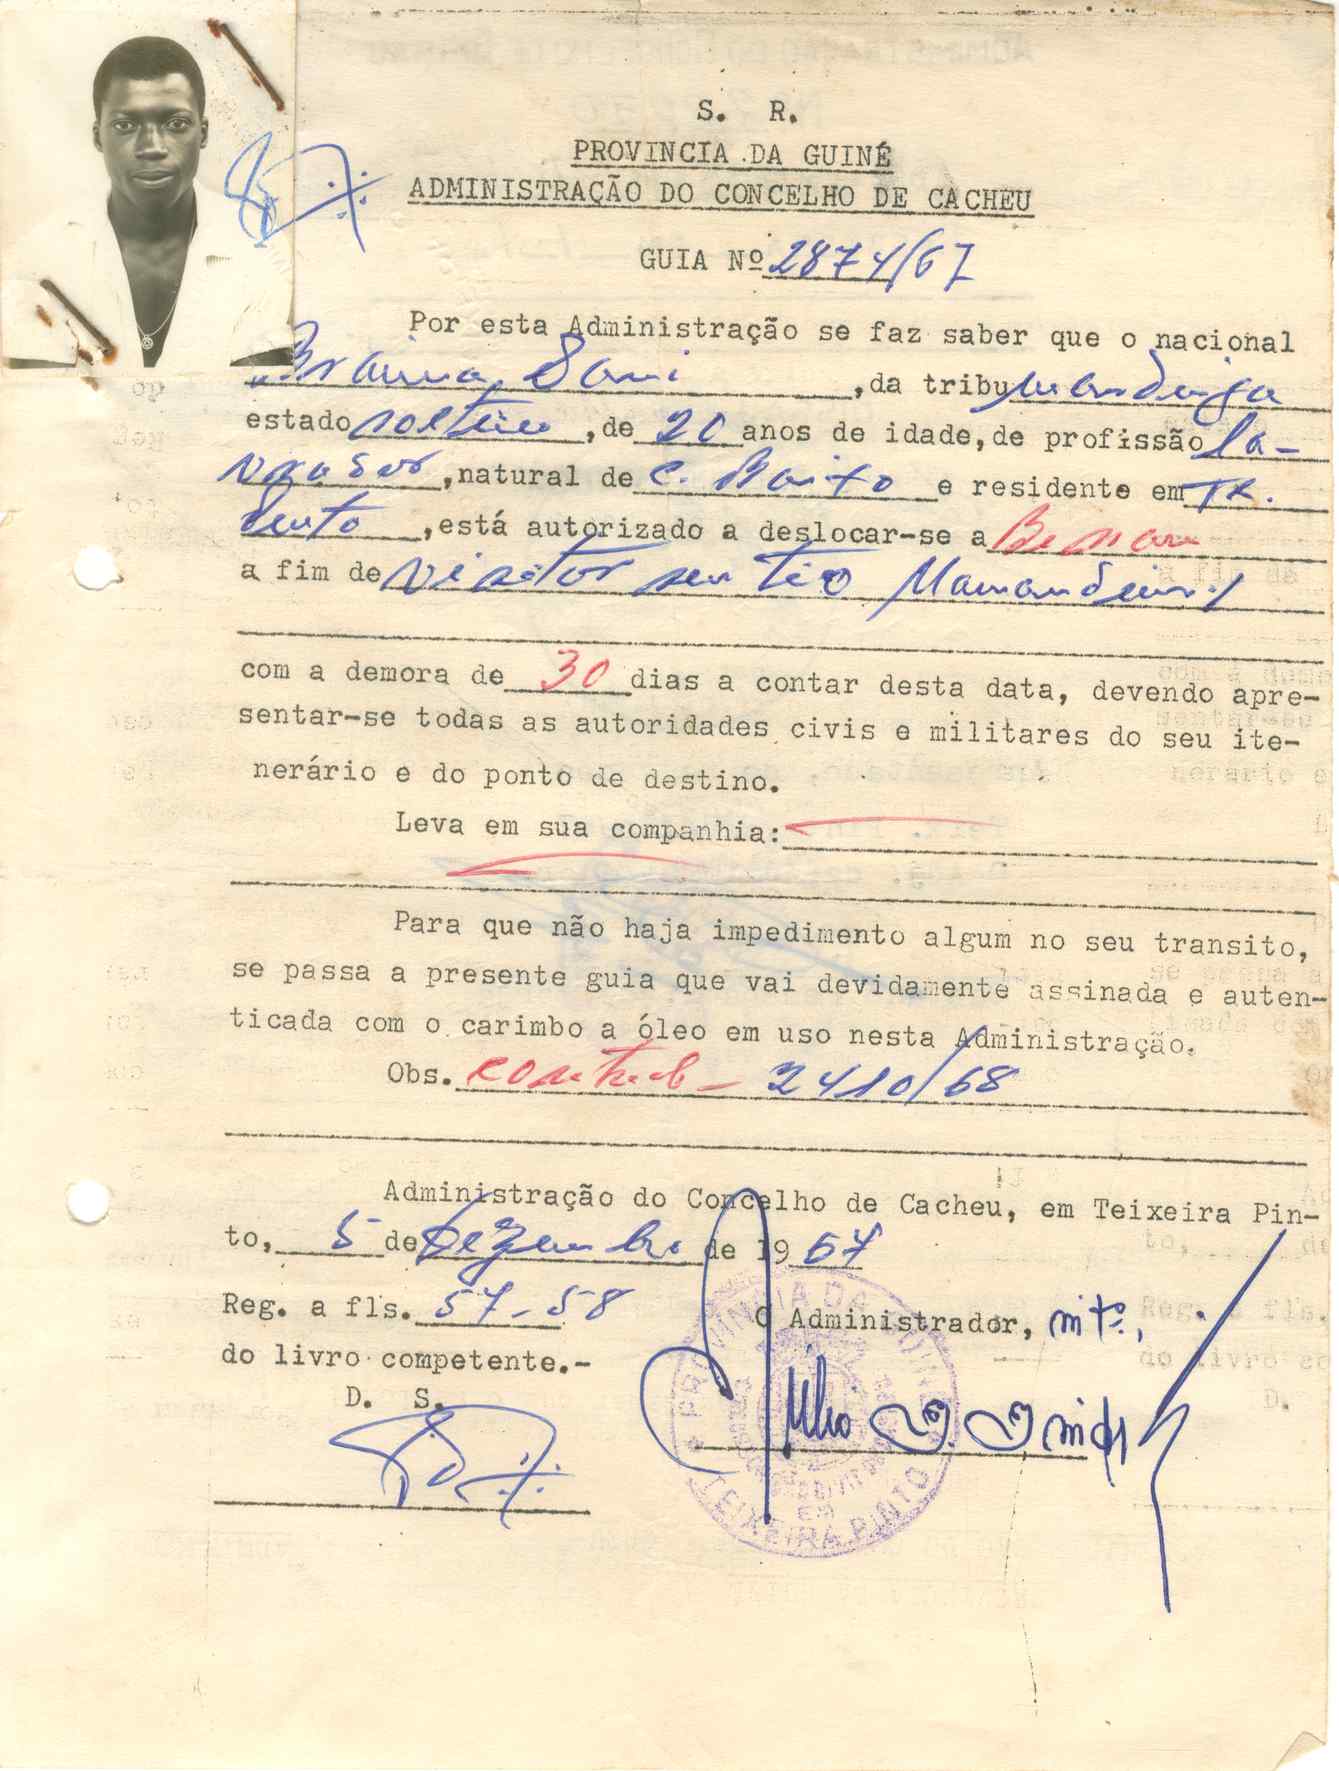 S. R.
PROVINCIA DA GUINÉ
ADMINISTRAÇÃO DO CONCELHO DE CACHEU
GUIA Nº 2874/67
Por esta Administração se faz saber que o nacional
Braima Sani, da tribu mandinga
estado solteiro, de 20 anos de idade, de profissão la-
vrador, natural de C. e residente em Tx.
Pinto, está autorizado a deslocar-se a Bissau
a fim de visitar seu tio
com a demora de 30 dias a contar desta data, devendo apre-
sentar-se todas as autoridades civis e militares do seu ite-
nerário e do ponto de destino.
Leva em sua companhia:
Para que não haja impedimento algum no seu transito,
se passa a presente guia que vai devidamente assinada e auten-
ticada com o carimbo a óleo em uso nesta Administração.
Obs. 2410/68
Administração do Concelho de Cacheu, em Teixeira Pin-
to, 5 de Dezembro de 1967
Reg. a fls. 57-58
do livro competente.-
O Administrador, intº.,
D. S.
PROVINCIA DA GUINÉ
TEIXEIRA PINTO